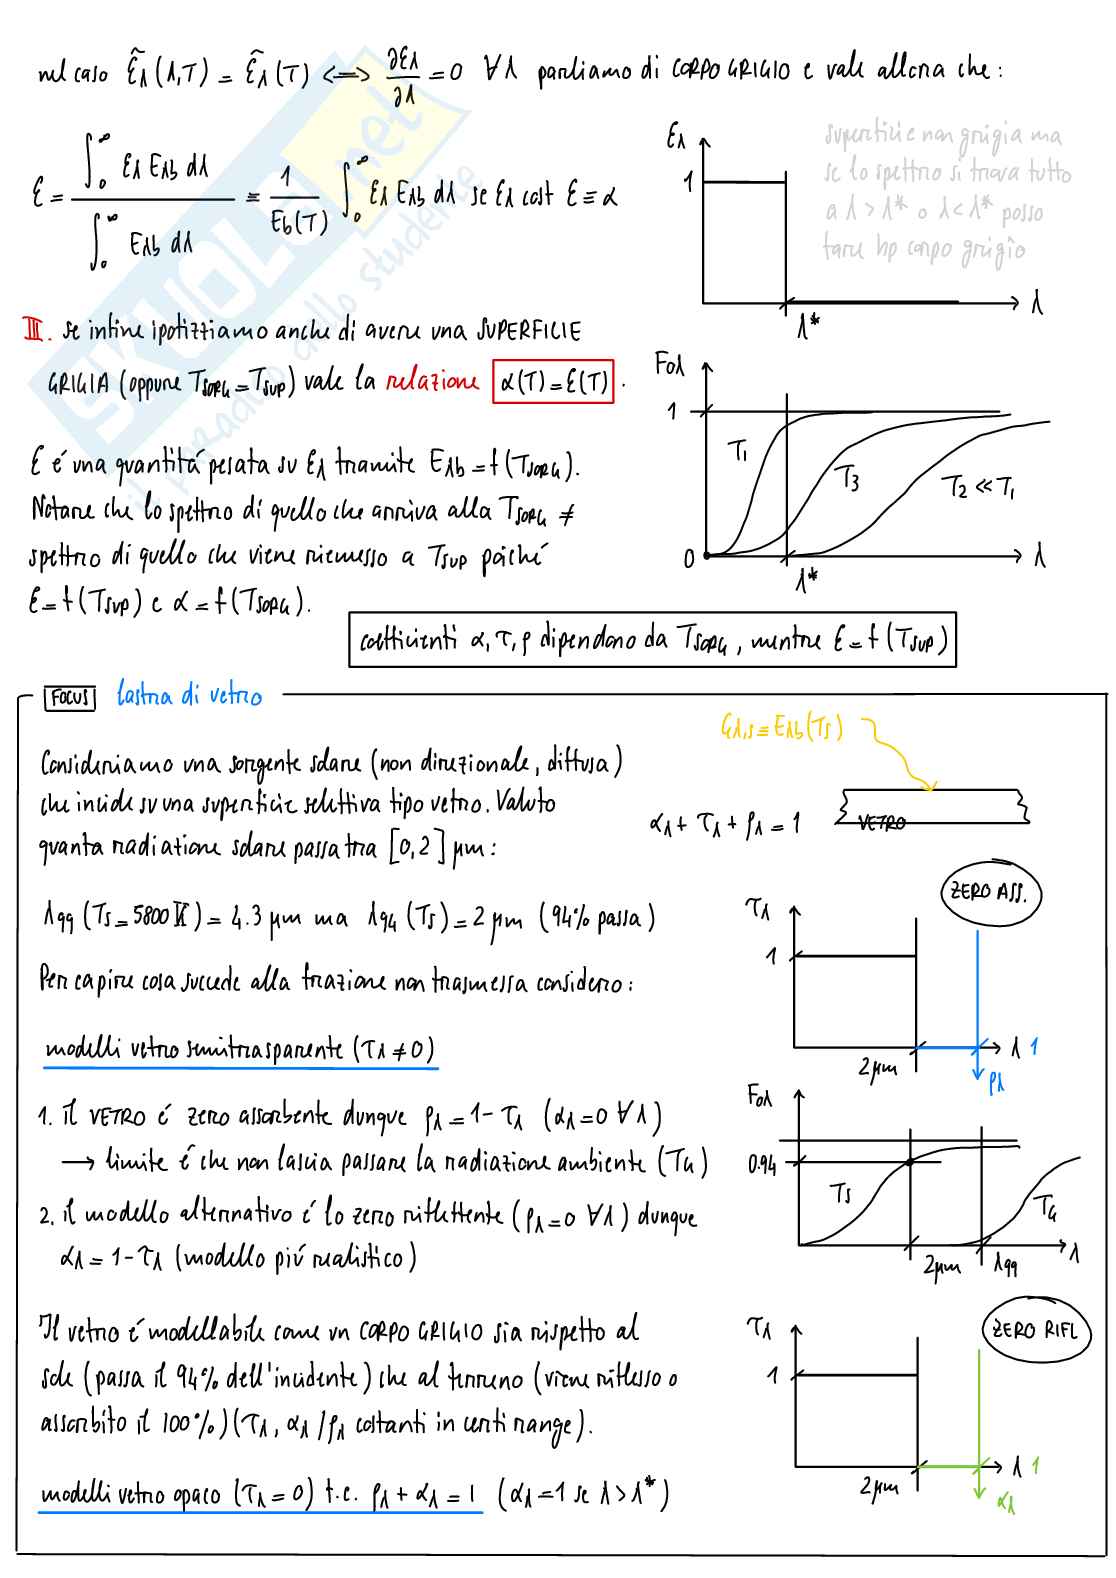 nel caso ε̃λ(λ,T) = ε̃λ(T) <=> ∂ελ/∂λ = 0 ∀λ parliamo di CORPO GRIGIO e vale allora che:
ε = ∫₀^∞ ελ Eλb dλ / ∫₀^∞ Eλb dλ = 1/Eb(T) ∫₀^∞ ελ Eλb dλ se ελ cost ε ≡ α
ελ
1
λ*
λ
superficie non grigia ma
se lo spettro si trova tutto
a λ > λ* o λ < λ* posso
fare hp corpo grigio
III. se infine ipotizziamo anche di avere una SUPERFICIE
GRIGIA (oppure TSORG = TSUP) vale la relazione α(T) = ε(T) .
F0λ
1
T1
T3
T2 << T1
0
λ*
λ
ε é una quantitá pesata su ελ tramite Eλb = f(TSORG).
Notare che lo spettro di quello che arriva alla TSORG ≠
spettro di quello che viene riemesso a TSUP poiché
ε = f(TSUP) e α = f(TSORG).
coefficienti α, τ, ρ dipendono da TSORG, mentre ε = f(TSUP)
FOCUS lastra di vetro
Gλ,s ≡ Eλb(Ts)
Consideriamo una sorgente solare (non direzionale, diffusa)
che incide su una superficie selettiva tipo vetro. Valuto
quanta radiazione solare passa tra [0,2] μm:
αλ + τλ + ρλ = 1
VETRO
λ99 (Ts = 5800 K) = 4.3 μm ma λ94 (Ts) = 2 μm (94% passa)
Per capire cosa succede alla frazione non trasmessa considero:
modelli vetro semitrasparente (τλ ≠ 0)
ZERO ASS.
τλ
1
2μm
λ 1
ρλ
1. il VETRO é zero assorbente dunque ρλ = 1 - τλ (αλ = 0 ∀λ)
→ limite é che non lascia passare la radiazione ambiente (TG)
2. il modello alternativo é lo zero riflettente (ρλ = 0 ∀λ) dunque
αλ = 1 - τλ (modello piú realistico)
F0λ
0.94
Ts
TG
2μm
λ99
λ
Il vetro é modellabile come un CORPO GRIGIO sia rispetto al
sole (passa il 94% dell'incidente) che al terreno (viene riflesso o
assorbito il 100%) (τλ, αλ/ρλ costanti in certi range).
modelli vetro opaco (τλ = 0) t.c. ρλ + αλ = 1 (αλ = 1 se λ > λ*)
ZERO RIFL
τλ
1
2μm
λ 1
αλ
SKUOLA.net
il paradiso dello studente